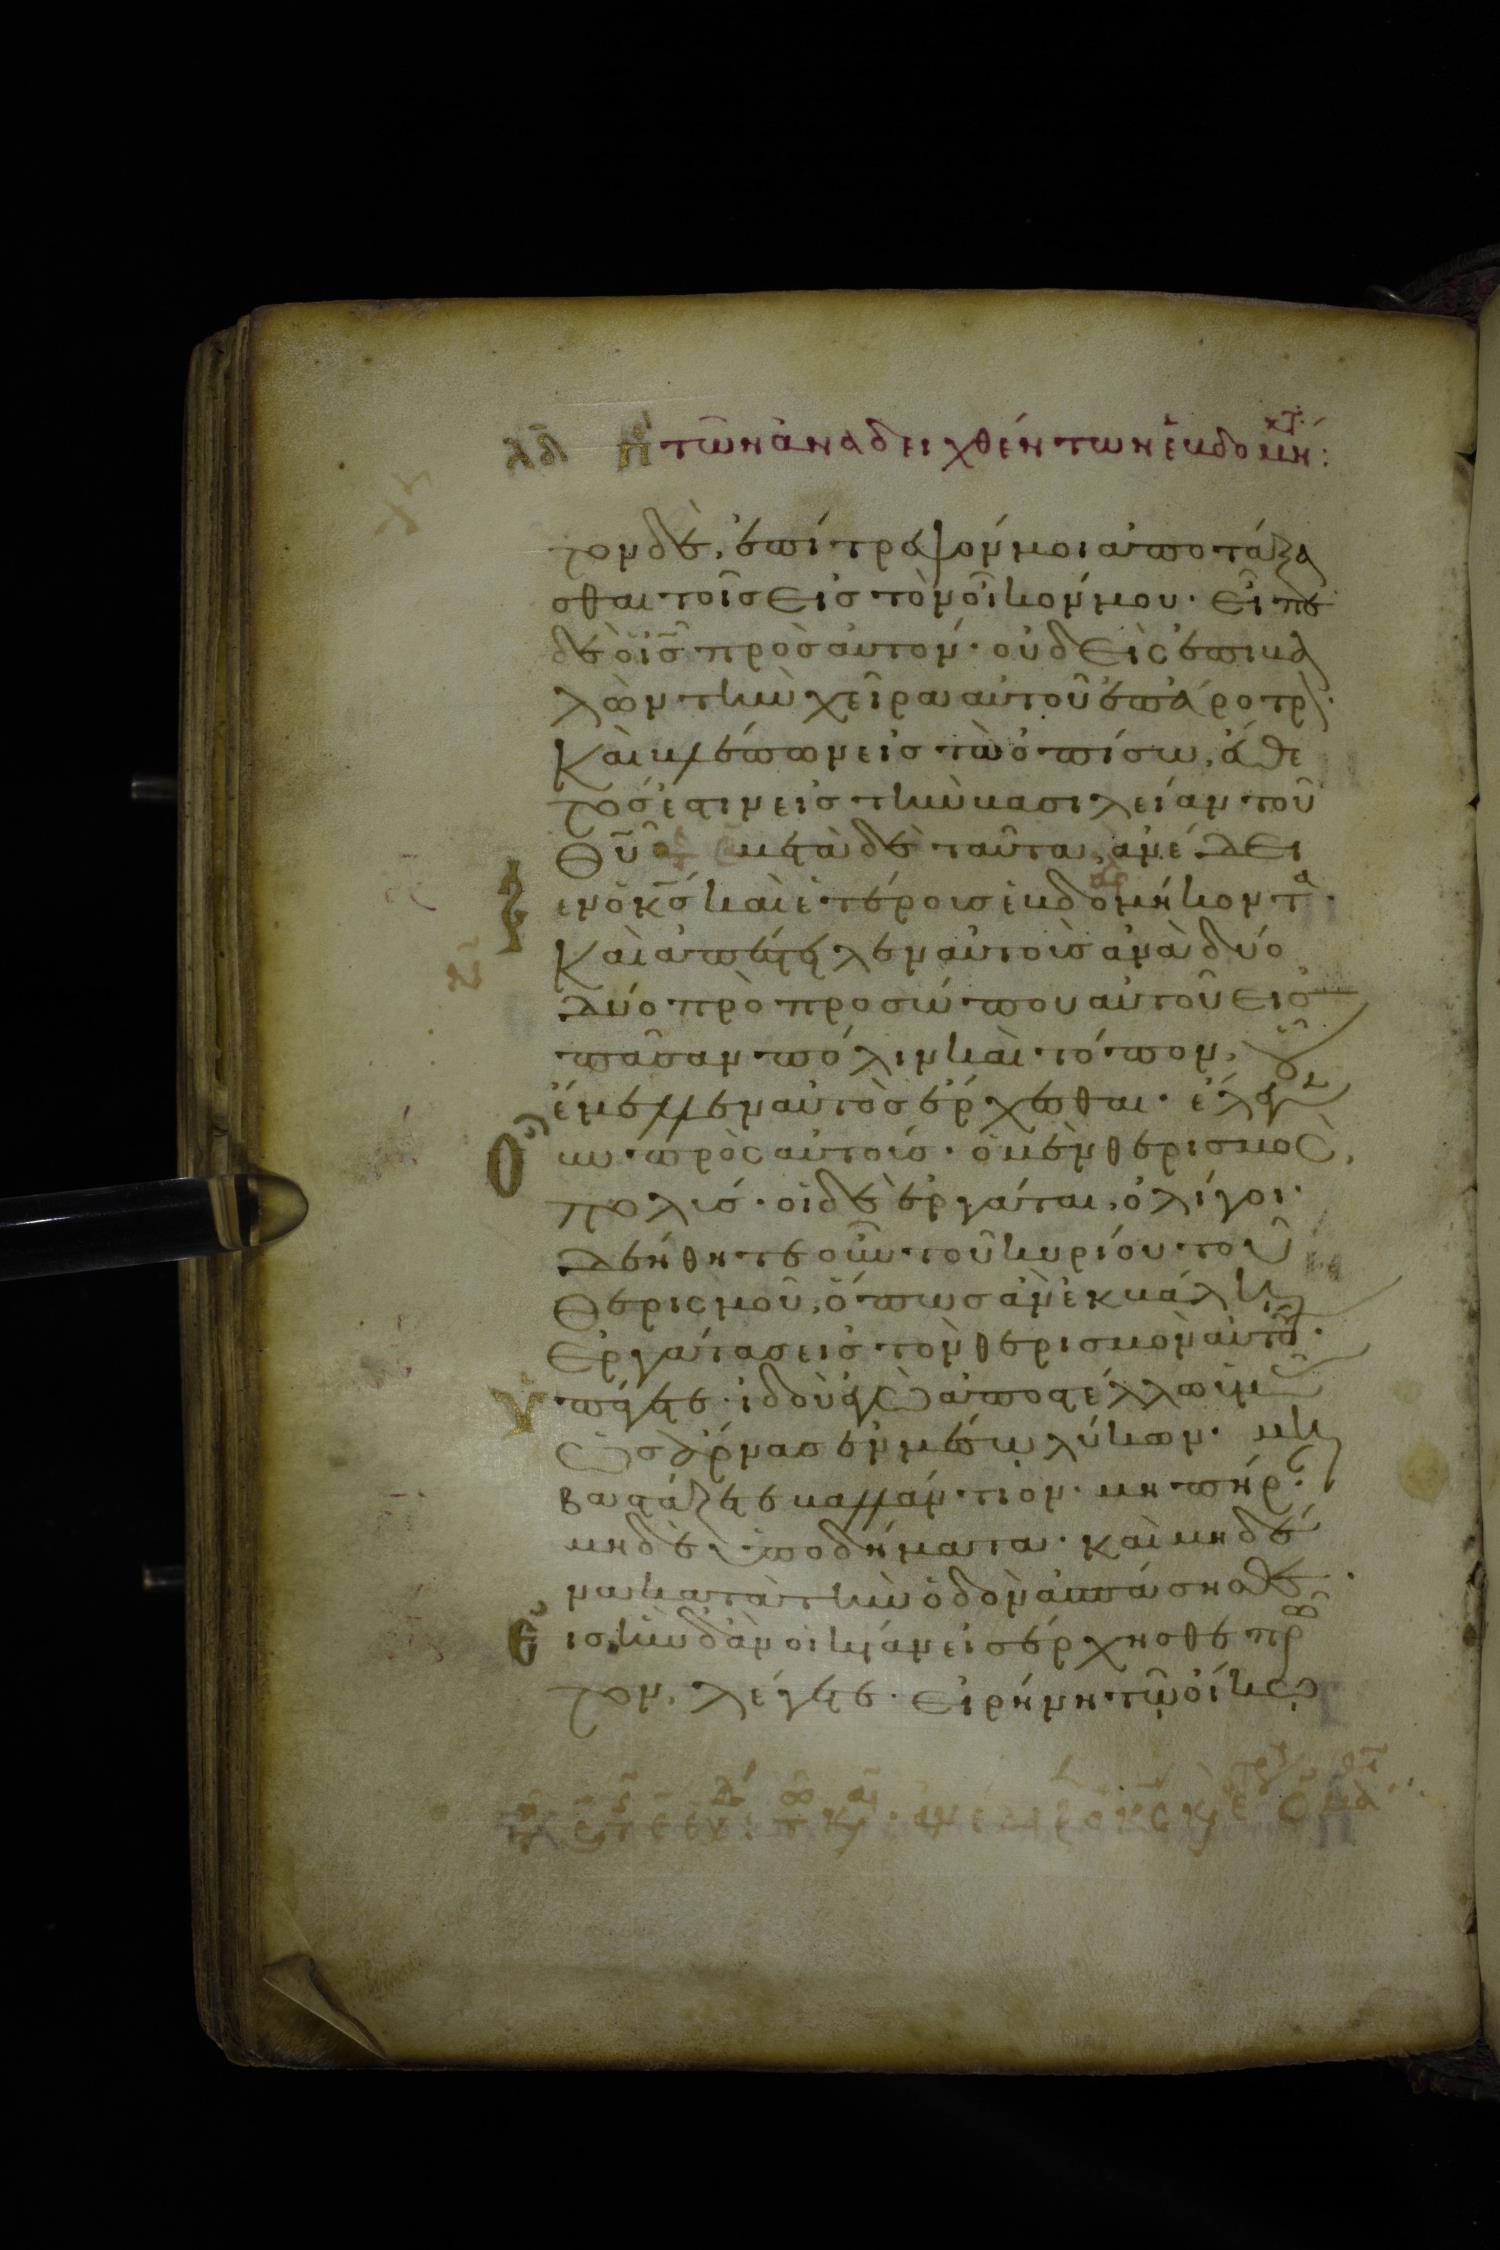 λδ π τῶν ἀναδειχθέντων ἑβδομήκτ:
τον δὲ, ἐπίτρεψόν μοι ἀποτάξα
σθαι τοῖς εἰς τὸν οἶκόν μου. εἶπε
δὲ ὁ ις̅ πρὸς αὐτόν. οὐδεὶς ἐπιβα
λὼν τὴν χεῖρα αὐτοῦ ἐπ' ἄροτρ
καὶ βλέπων εἰς τὰ ὀπίσω, εὔθε
τός ἐστιν εἰς τὴν βασιλείαν τοῦ
θυ̅ μετὰ δὲ ταῦτα, ἀνέδει
ξεν ὁ κς̅ καὶ ἑτέρους ἑβδομήκοντα.
καὶ ἀπέστειλεν αὐτοὺς ἀνὰ δύο
δύο πρὸ προσώπου αὐτοῦ εἰς
πᾶσαν πόλιν καὶ τόπον, οὗ
ἔμελλεν αὐτὸς ἔρχεσθαι. ἔλεγεν
οὖν πρὸς αὐτούς. ὁ μὲν θερισμὸς,
πολύς. οἱ δὲ ἐργάται, ὀλίγοι.
δεήθητε οὖν τοῦ κυρίου τοῦ
θερισμοῦ, ὅπως ἂν ἐκβάλη
ἐργάτας εἰς τὸν θερισμὸν αὐτοῦ.
ὑπάγετε. ἰδοὺ ἐγὼ ἀποστέλλω ὑμᾶς
ὡς ἄρνας ἐν μέσω λύκων. μὴ
βαστάζετε βαλλάντιον. μὴ πήρ
μηδὲ ὑποδήματα. καὶ μηδέ
να κατὰ τὴν ὁδὸν ἀσπάσησθε.
εἰς ἣν δ' ἂν οἰκίαν εἰσέρχησθε πρῶ
τον, λέγετε. εἰρήνη τῷ οἴκω